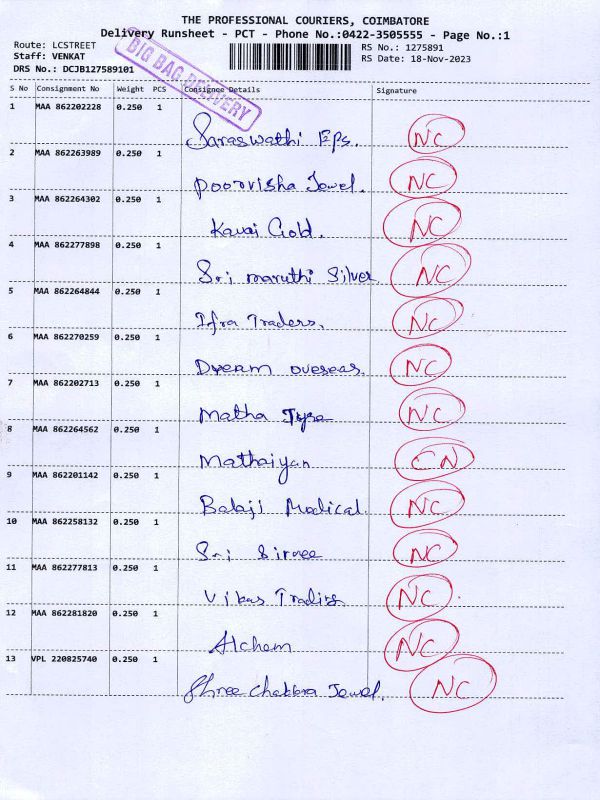 THE PROFESSIONAL COURIERS, COIMBATORE
Delivery Runsheet - PCT - Phone No.:0422-3505555 - Page No.:1
Route: LCSTREET
Staff: VENKAT
DRS No.: DCJB127589101
RS No.: 1275891
RS Date: 18-Nov-2023
BIG BAG DELIVERY
S No Consignment No Weight PCS Consignee Details Signature
1 MAA 862202228 0.250 1
Saraswathi Eps. NC
2 MAA 862263989 0.250 1
Poorvisha Jewel. NC
3 MAA 862264302 0.250 1
Kavai Gold. NC
4 MAA 862277898 0.250 1
Sri maruthi Silver NC
5 MAA 862264844 0.250 1
Ifra Traders. NC
6 MAA 862270259 0.250 1
Dream overseas. NC
7 MAA 862202713 0.250 1
Matha NC
8 MAA 862264562 0.250 1
Mathaiyan CN
9 MAA 862201142 0.250 1
Balaji Medical. NC
10 MAA 862258132 0.250 1
Sri NC
11 MAA 862277813 0.250 1
Vikas Trading NC
12 MAA 862281820 0.250 1
Alchem NC
13 VPL 220825740 0.250 1
Shree Chakra Jewel. NC